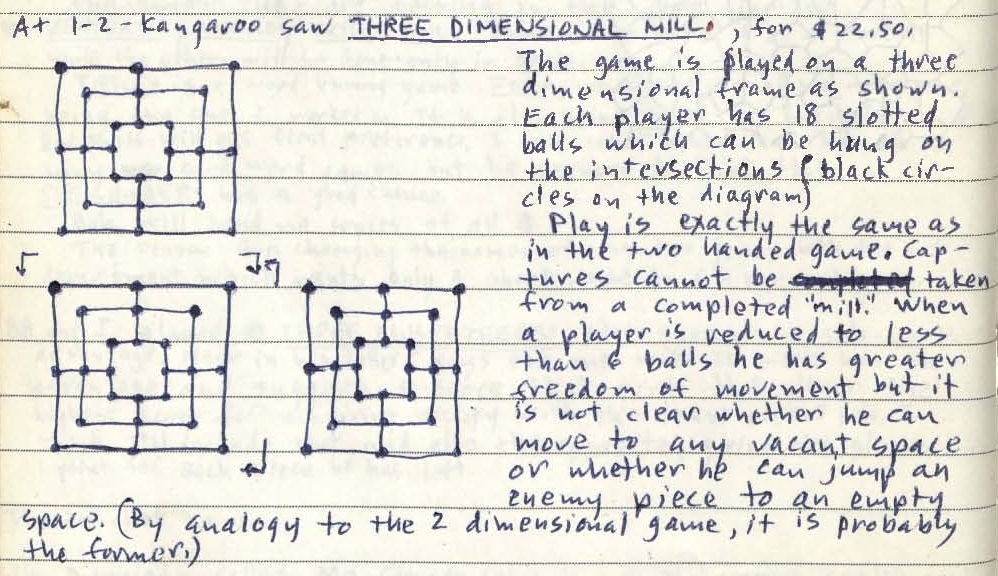 At 1-2-Kangaroo saw THREE DIMENSIONAL MILL. , for $22.50.
The game is played on a three
dimensional frame as shown.
Each player has 18 slotted
balls which can be hung on
the intersections (black cir-
cles on the diagram)
Play is exactly the same as
in the two handed game. Cap-
tures cannot be completed taken
from a completed "mill." When
a player is reduced to less
than 6 balls he has greater
freedom of movement but it
is not clear whether he can
move to any vacant space
or whether he can jump an
enemy piece to an empty
space. (By analogy to the 2 dimensional game, it is probably
the former.)